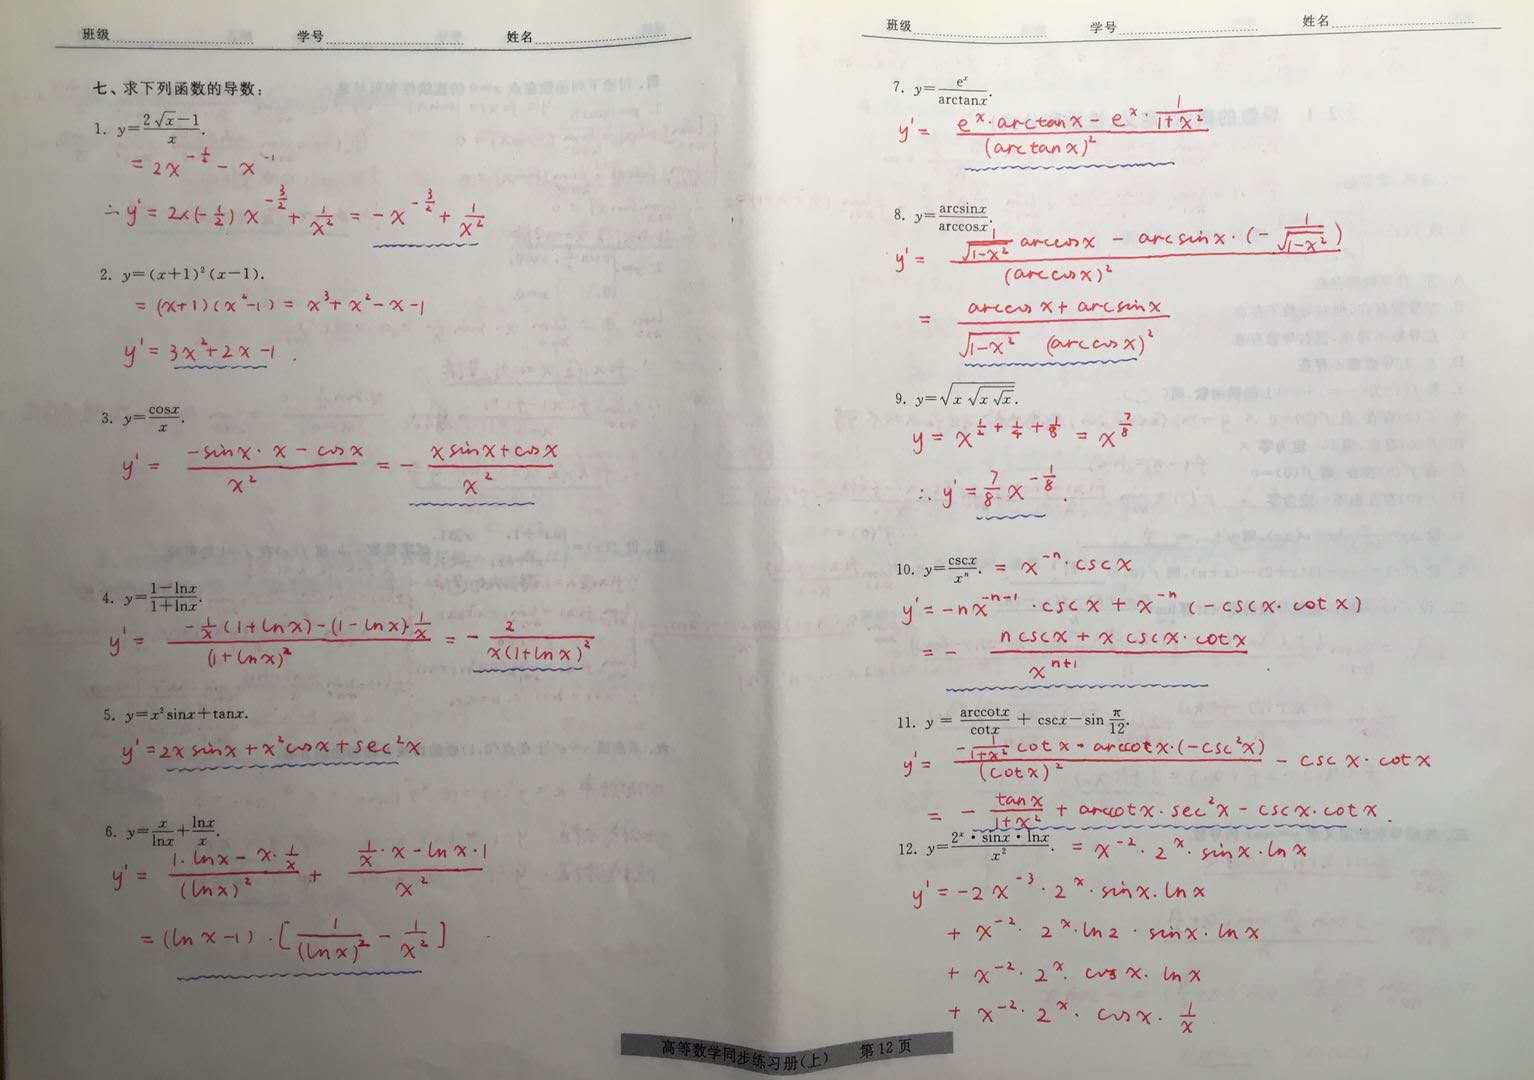 班级 学号 姓名
七、求下列函数的导数：
1. y=(2√x−1)/x.
= 2x^(-1/2) − x^(-1)
∴ y' = 2×(−1/2) x^(-3/2) + 1/x² = −x^(-3/2) + 1/x²
2. y=(x+1)²(x−1).
= (x+1)(x²−1) = x³+x²−x−1
y' = 3x²+2x−1.
3. y=cosx/x.
y' = (−sinx·x − cosx)/x² = −(xsinx+cosx)/x²
4. y=(1−lnx)/(1+lnx).
y' = (−1/x(1+lnx)−(1−lnx)·1/x)/(1+lnx)² = −2/(x(1+lnx)²)
5. y=x²sinx+tanx.
y'=2xsinx+x²cosx+sec²x
6. y=x/lnx+lnx/x.
y' = (1·lnx−x·1/x)/(lnx)² + (1/x·x−lnx·1)/x²
= (lnx−1)·[1/(lnx)² − 1/x²]
班级 学号 姓名
7. y=e^x/arctanx.
y' = (e^x·arctanx − e^x·1/(1+x²))/(arctanx)²
8. y=arcsinx/arccosx.
y' = (1/√(1−x²) arccosx − arcsinx·(−1/√(1−x²)))/(arccosx)²
= (arccosx+arcsinx)/(√(1−x²) (arccosx)²)
9. y=√(x√(x√x)).
y = x^(1/2+1/4+1/8) = x^(7/8)
∴ y' = 7/8 x^(-1/8).
10. y=cscx/x^n. = x^(-n)·cscx
y' = −nx^(-n-1)·cscx + x^(-n)(−cscx·cotx)
= −(ncscx + xcscx·cotx)/x^(n+1)
11. y = arccotx/cotx + cscx−sin π/12.
y' = (−1/(1+x²) cotx − arccotx·(−csc²x))/(cotx)² − cscx·cotx
= −tanx/(1+x²) + arccotx·sec²x − cscx·cotx.
12. y=(2^x·sinx·lnx)/x². = x^(-2)·2^x·sinx·lnx
y' = −2x^(-3)·2^x·sinx·lnx
+ x^(-2)·2^x·ln2·sinx·lnx
+ x^(-2)·2^x·cosx·lnx
+ x^(-2)·2^x·cosx·1/x
高等数学同步练习册(上) 第12页